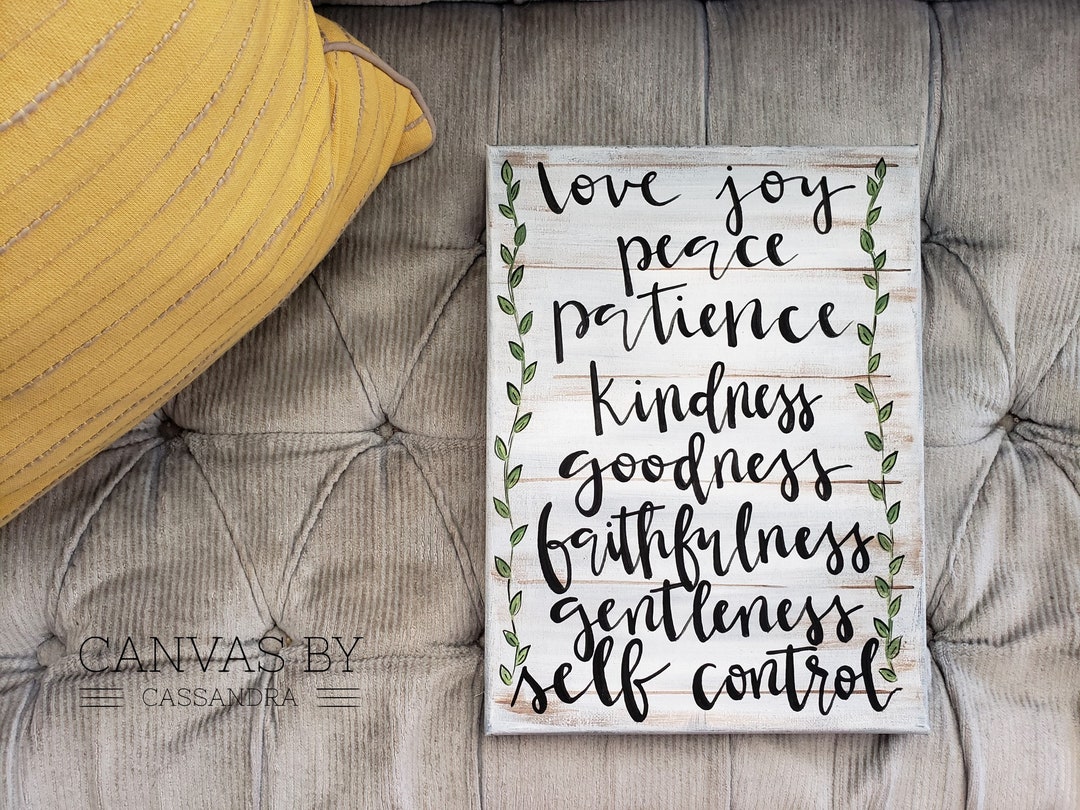 love joy
peace
patience
kindness
goodness
faithfulness
gentleness
self control
CANVAS BY
CASSANDRA